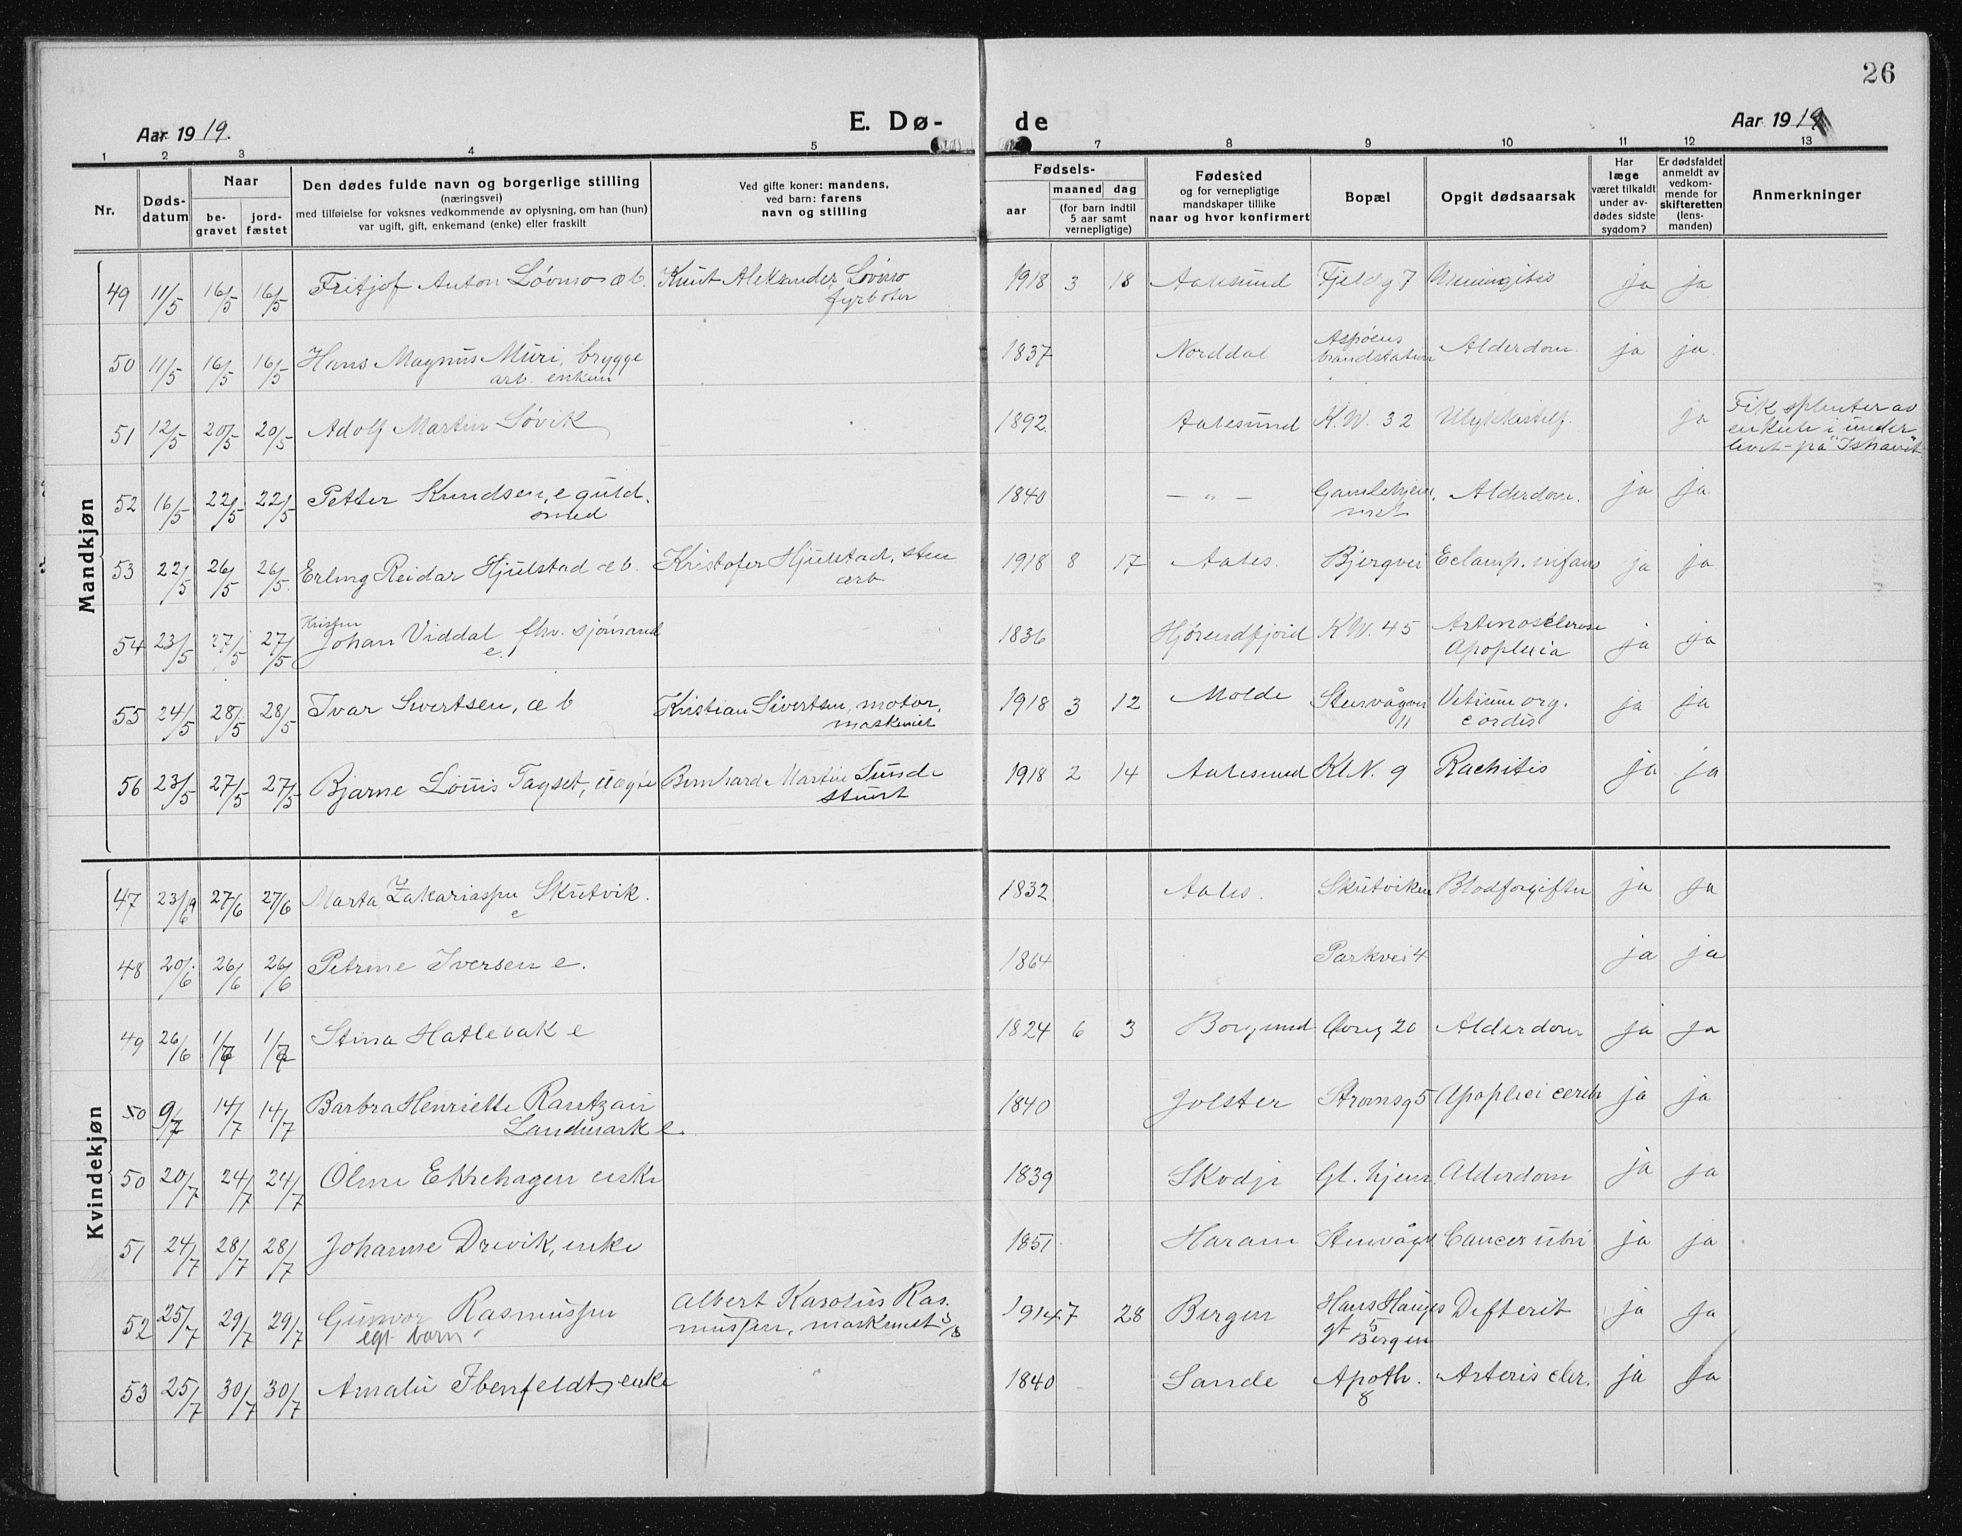 26
Aar 1919.
E. Dø-
de
Aar 1919
1 2 3 4 5 7 8 9 10 11 12 13
Nr.
Døds-
datum
Naar
be-
gravet
jord-
fæstet
Den dødes fulde navn og borgerlige stilling
(næringsvei)
med tilføielse for voksnes vedkommende av oplysning, om han (hun)
var ugift, gift, enkemand (enke) eller fraskilt
Ved gifte koner: mandens,
ved barn: farens
navn og stilling
Fødsels-
aar
maaned dag
(for barn indtil
5 aar samt
vernepligtige)
Fødested
og for vernepligtige
mandskaper tillike
naar og hvor konfirmert
Bopæl
Opgit dødsaarsak
Har
læge
været tilkaldt
under av-
dødes sidste
sygdom?
Er dødsfaldet
anmeldt av
vedkom-
mende for
skifteretten
(lens-
manden)
Anmerkninger
Mandkjøn
49 11/5 16/5 16/5 Fritjof Anton Løvmo æ b. Knut Aleksander Løvmo 1918 3 18 Aalesund Fjeldg 7 Meningitis ja ja
fyrbøter
50 11/5 16/5 16/5 Hans Magnus Muri, brygge 1837 Norddal Aspøens Alderdom. ja ja
arb. enkem brandstation
51 12/5 20/5 20/5 Adolf Martin Løvik 1892 Aalesund K.W. 32 Ulykkestilf. ja Fik splinter av
en kule i under
livet på "Ishavet"
52 16/5 22/5 22/5 Petter Knudsen, e guld. 1840 — " — Gamlehjem Alderdom. ja ja
smed met
53 22/5 26/5 26/5 Erling Reidar Hjulstad æ b. Kristofer Hjulstad, sten 1918 8 17 Aales. Bjergvei Eclamp. infans ja ja
arb
54 23/5 27/5 27/5 Johan Viddal fhv. sjømand 1836 Hjørundfjord K.W. 45 ja ja
e. Apoplexia
55 24/5 28/5 28/5 Ivar Sivertsen, æ b Kristian Sivertsen, motor, 1918 3 12 Molde Stenvågvei Vitium org. ja ja
maskinist 11 cordis
56 23/5 27/5 27/5 Bjarne Louis Tagset, uægte Bernhard Martin Sunde 1918 2 14 Aalesund Kl N. 9 Rachitis ja ja
stuert
Kvindekjøn
47 23/6 27/6 27/6 Marta Zakariassen Skutvik. 1832 Aales. Skutviken Blodforgiftn ja ja
e
48 20/6 26/6 26/6 Petrine Iversen e. 1864 Parkvei 4 ja ja
49 26/6 1/7 1/7 Stina Hatlebak e 1824 6 3 Borgund 20 Alderdom ja ja
50 9/7 14/7 14/7 Barbra Henriette Rantzau 1840 Jølster Strømsg 5 Apoplexi cereb ja ja
Landmark e.
50 20/7 24/7 24/7 Oline Ekrehagen enke 1839 Skodje Gl. hjem. Alderdom ja ja
51 24/7 28/7 28/7 Johanne Drevik, enke 1851 Haram Stenvågv Cancer uteri ja ja
52 25/7 29/7 29/7 Gunvor Rasmussen Albert Karolus Ras. 1914 7 28 Bergen Hans Hauges Difterit ja ja
egt. barn mussen, maskinist gt 5
Bergen
53 25/7 30/7 30/7 Amalie Ibenfeldt, enke 1840 Sande Apoth. Arterioscler. ja ja
8